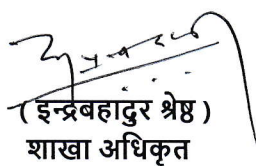 ( इन्द्रबहादुर श्रेष्ठ )
शाखा अधिकृत